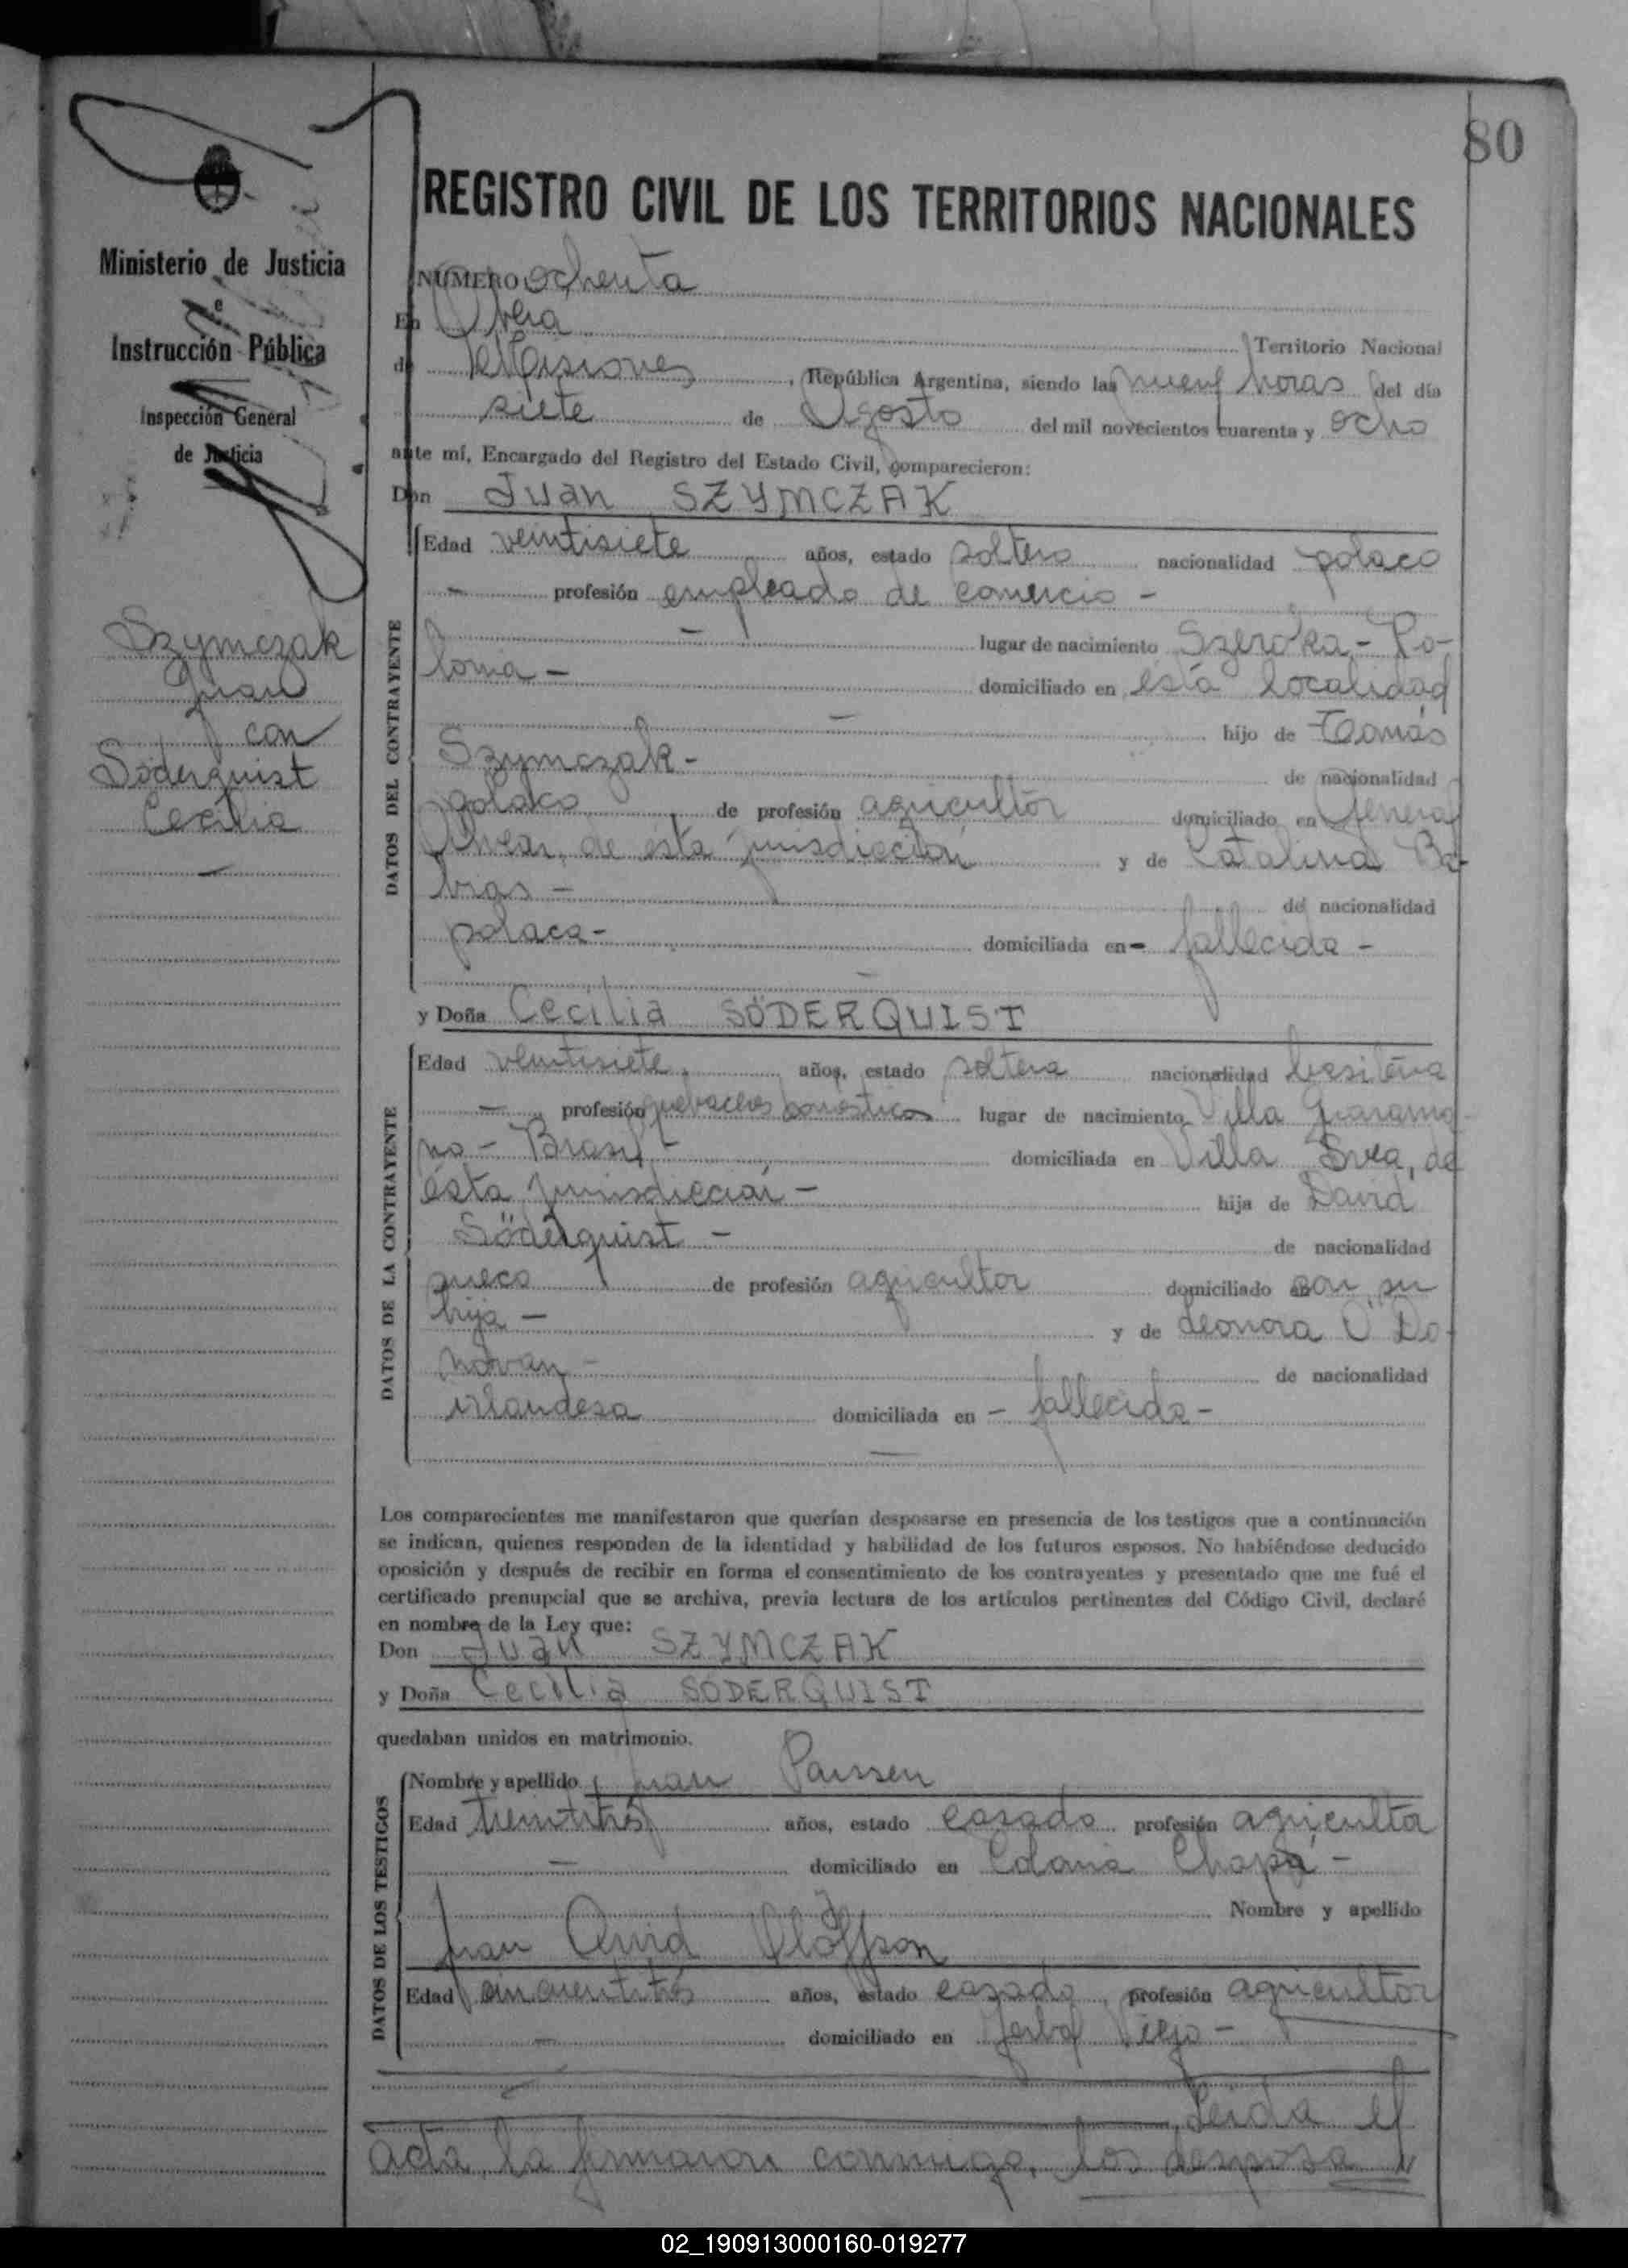 80
Ministerio de Justicia
e
Instrucción Pública
Inspección General
de Justicia
Szymczak
Juan
con
Söderquist
Cecilia
REGISTRO CIVIL DE LOS TERRITORIOS NACIONALES
NÚMERO ochenta
En Oberá Territorio Nacional
de Misiones, República Argentina, siendo las nueve horas del día
siete de Agosto del mil novecientos cuarenta y ocho
ante mí, Encargado del Registro del Estado Civil, comparecieron:
Don Juan SZYMCZAK
DATOS DEL CONTRAYENTE
Edad veintisiete años, estado soltero nacionalidad polaco
- profesión empleado de comercio -
- lugar de nacimiento Szeroka - Po-
lonia - domiciliado en ésta localidad
- hijo de Tomás
Szymczak - de nacionalidad
polaco de profesión agricultor domiciliado en General
Alvear, de ésta jurisdicción y de Catalina Ba-
brias - de nacionalidad
polaca - domiciliada en - fallecida -
y Doña Cecilia SÖDERQUIST
DATOS DE LA CONTRAYENTE
Edad veintisiete años, estado soltera nacionalidad brasilera
- profesión quehaceres domésticos lugar de nacimiento Villa Guaramo-
no - Brasil - domiciliada en Villa Svea, de
ésta jurisdicción - hija de David
Söderquist - de nacionalidad
sueco de profesión agricultor domiciliado con su
hija - y de Leonora O'Do-
novan - de nacionalidad
irlandesa domiciliada en - fallecida -
Los comparecientes me manifestaron que querían desposarse en presencia de los testigos que a continuación
se indican, quienes responden de la identidad y habilidad de los futuros esposos. No habiéndose deducido
oposición y después de recibir en forma el consentimiento de los contrayentes y presentado que me fué el
certificado prenupcial que se archiva, previa lectura de los artículos pertinentes del Código Civil, declaré
en nombre de la Ley que:
Don Juan SZYMCZAK
y Doña Cecilia SÖDERQUIST
quedaban unidos en matrimonio.
DATOS DE LOS TESTIGOS
Nombre y apellido Juan Paussen
Edad treintitrés años, estado casado profesión agricultor
- domiciliado en Colonia Chapá -
Nombre y apellido
Juan Arvid Olöffson
Edad cincuentitrés años, estado casado, profesión agricultor
- domiciliado en Yerbal Viejo -
Leída el
acta, la firmaron conmigo, los desposa
02_190913000160-019277